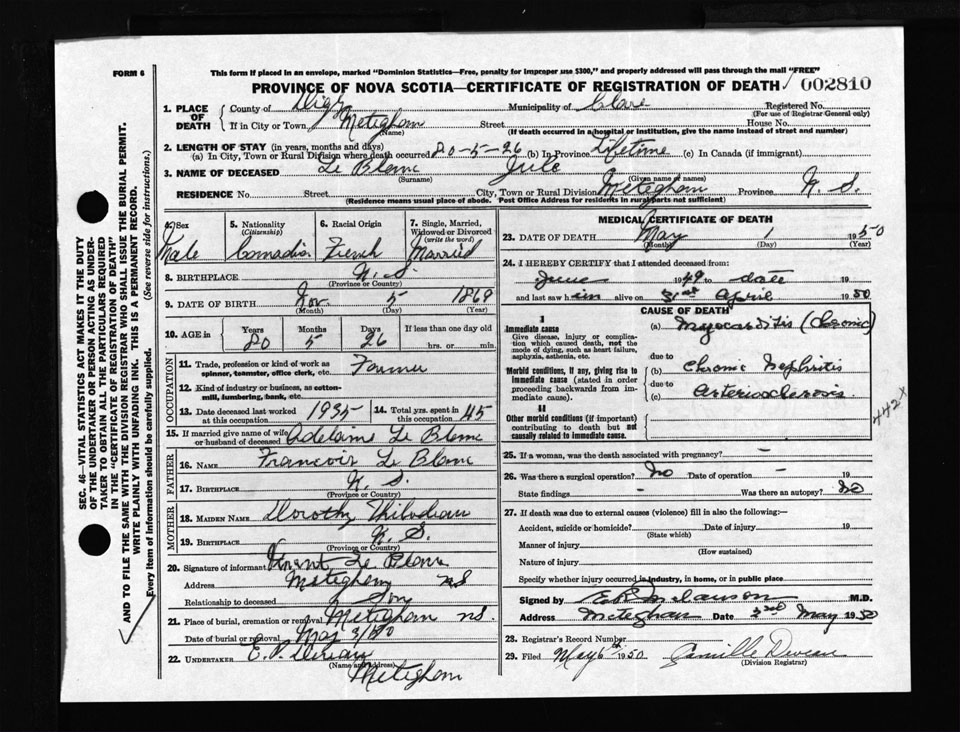 FORM 6
This form if placed in an envelope, marked "Dominion Statistics—Free, penalty for improper use $300," and properly addressed will pass through the mail "FREE"
PROVINCE OF NOVA SCOTIA—CERTIFICATE OF REGISTRATION OF DEATH 002810
1. PLACE OF DEATH
County of Digby Municipality of Clare Registered No.
(For use of Registrar General only)
If in City or Town Meteghan Street House No.
(Name) (If death occurred in a hospital or institution, give the name instead of street and number)
2. LENGTH OF STAY (in years, months and days)
(a) In City, Town or Rural Division where death occurred 80-5-26 (b) In Province Lifetime (c) In Canada (if immigrant)
3. NAME OF DECEASED Le Blanc Jule
(Surname) (Given name or names)
RESIDENCE No. Street City, Town or Rural Division Meteghan Province N. S.
(Residence means usual place of abode. Post Office Address for residents in rural parts not sufficient)
4. Sex Male
5. Nationality (Citizenship) Canadian
6. Racial Origin French
7. Single, Married, Widowed or Divorced (write the word) Married
8. BIRTHPLACE N. S.
(Province or Country)
9. DATE OF BIRTH Nov 5 1869
(Month) (Day) (Year)
10. AGE in Years 80 Months 5 Days 26 If less than one day old hrs. or min.
OCCUPATION
11. Trade, profession or kind of work as spinner, teamster, office clerk, etc. Farmer
12. Kind of industry or business, as cotton-mill, lumbering, bank, etc.
13. Date deceased last worked at this occupation 1935 14. Total yrs. spent in this occupation 45
15. If married give name of wife or husband of deceased Adelaine Le Blanc
FATHER
16. NAME Francois Le Blanc
17. BIRTHPLACE N. S.
(Province or Country)
MOTHER
18. MAIDEN NAME Dorothy Thibodeau
19. BIRTHPLACE N. S.
(Province or Country)
20. Signature of informant Le Blanc
Address Meteghan NS
Relationship to deceased Son
21. Place of burial, cremation or removal Meteghan NS.
Date of burial or removal May 3/1950
22. UNDERTAKER E. P.
(Name and address)
Meteghan
MEDICAL CERTIFICATE OF DEATH
23. DATE OF DEATH May 1 1950
(Month) (Day) (Year)
24. I HEREBY CERTIFY that I attended deceased from:
June 1949 to date 19
and last saw him alive on 31st April 1950
CAUSE OF DEATH
I
Immediate cause
Give disease, injury or complication which caused death, not the mode of dying, such as heart failure, asphyxia, asthenia, etc.
(a) Myocarditis (Chronic)
due to
Morbid conditions, if any, giving rise to immediate cause (stated in order proceeding backwards from immediate cause).
(b) Chronic Nephritis
due to
(c) Arteriosclerosis
II
Other morbid conditions (if important) contributing to death but not causally related to immediate cause.
442x
25. If a woman, was the death associated with pregnancy? -
26. Was there a surgical operation? No Date of operation - 19
State findings - Was there an autopsy? No
27. If death was due to external causes (violence) fill in also the following:—
Accident, suicide or homicide? Date of injury 19
(State which)
Manner of injury
(How sustained)
Nature of injury
Specify whether injury occurred in industry, in home, or in public place
Signed by Melanson M.D.
Address Meteghan Date 3rd May 1950
28. Registrar's Record Number
29. Filed May 6th 1950 Camille Deveau
(Division Registrar)
SEC. 46—VITAL STATISTICS ACT MAKES IT THE DUTY
OF THE UNDERTAKER OR PERSON ACTING AS UNDER-
TAKER TO OBTAIN ALL THE PARTICULARS REQUIRED
IN THE "CERTIFICATE OF REGISTRATION OF DEATH"
AND TO FILE THE SAME WITH THE DIVISION REGISTRAR WHO SHALL ISSUE THE BURIAL PERMIT.
WRITE PLAINLY WITH UNFADING INK. THIS IS A PERMANENT RECORD.
Every item of information should be carefully supplied. (See reverse side for instructions.)